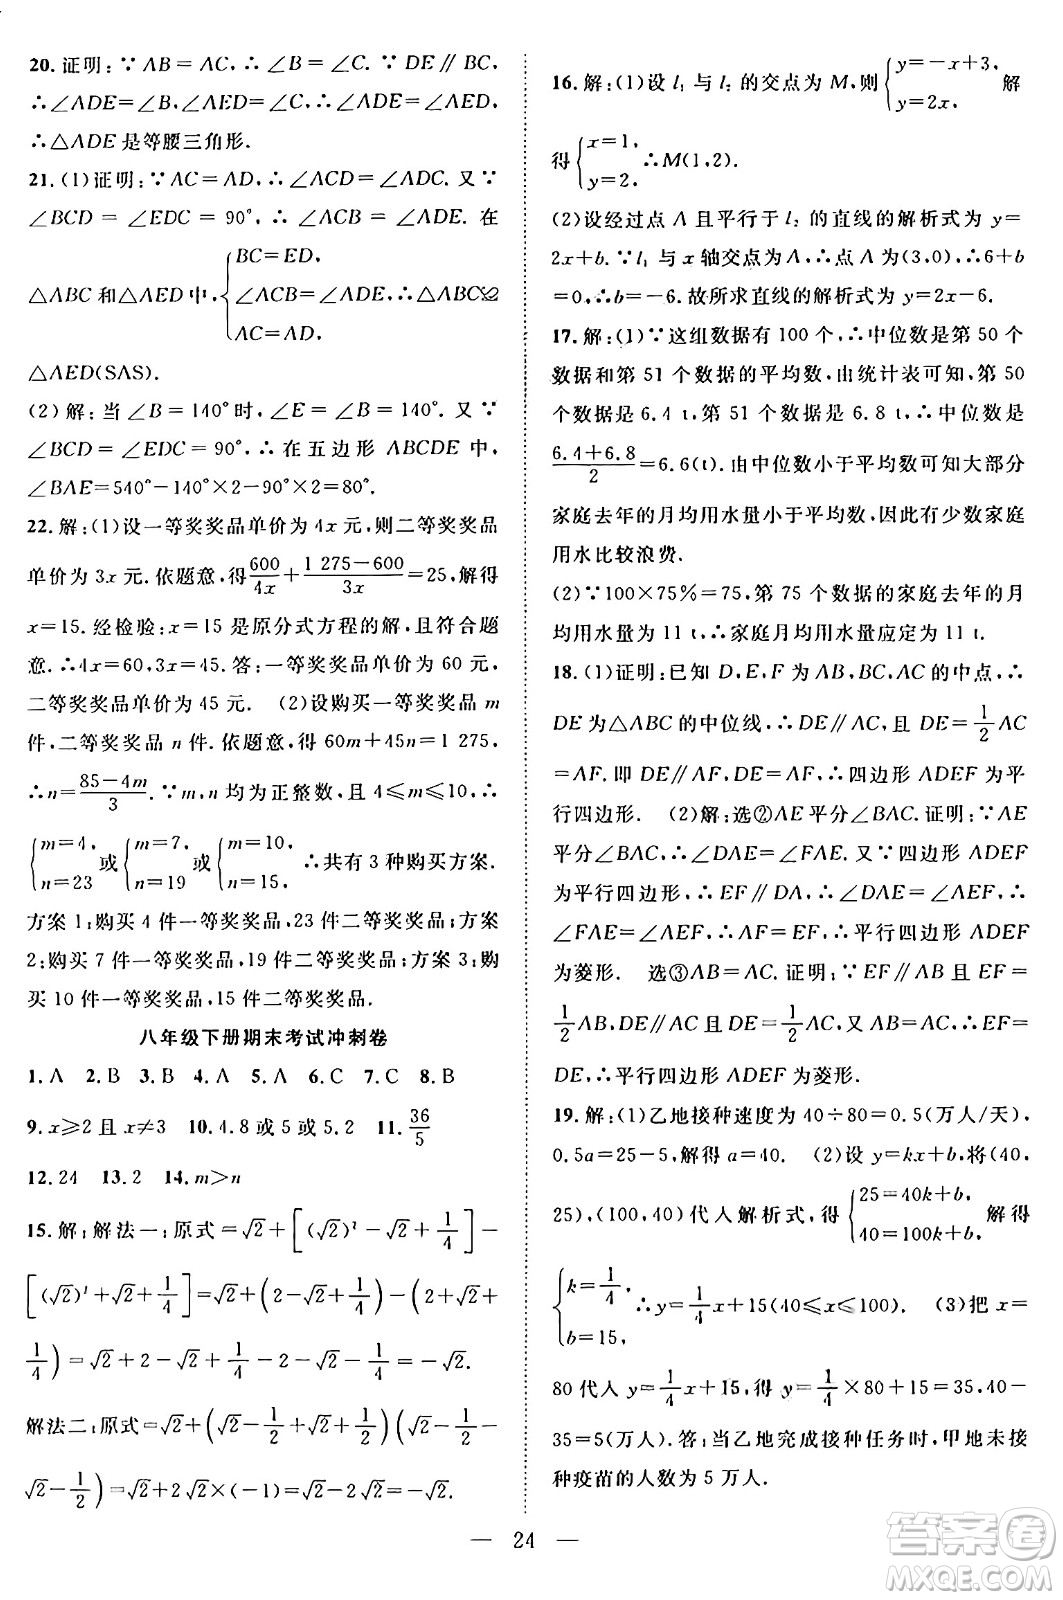 20.证明:∵AB=AC,∴∠B=∠C.∵DE∥BC,
∴∠ADE=∠B,∠AED=∠C,∴∠ADE=∠AED,
∴△ADE是等腰三角形.
21.(1)证明:∵AC=AD,∴∠ACD=∠ADC.又∵
∠BCD=∠EDC=90°,∴∠ACB=∠ADE.在
△ABC和△AED中,{BC=ED, ∠ACB=∠ADE, AC=AD, ∴△ABC≌
△AED(SAS).
(2)解:当∠B=140°时,∠E=∠B=140°.又∵
∠BCD=∠EDC=90°,∴在五边形ABCDE中,
∠BAE=540°-140°×2-90°×2=80°.
22.解:(1)设一等奖奖品单价为4x元,则二等奖奖品
单价为3x元.依题意,得600/4x+(1 275-600)/3x=25,解得
x=15.经检验:x=15是原分式方程的解,且符合题
意.∴4x=60,3x=45.答:一等奖奖品单价为60元,
二等奖奖品单价为45元. (2)设购买一等奖奖品m
件,二等奖奖品n件.依题意,得60m+45n=1 275,
∴n=(85-4m)/3.∵m,n均为正整数,且4≤m≤10,∴
{m=4, n=23 或 {m=7, n=19 或 {m=10, n=15, ∴共有3种购买方案.
方案1:购买4件一等奖奖品,23件二等奖奖品;方案
2:购买7件一等奖奖品,19件二等奖奖品;方案3:购
买10件一等奖奖品,15件二等奖奖品.
八年级下册期末考试冲刺卷
1.A 2.B 3.B 4.A 5.A 6.C 7.C 8.B
9.x≥2且x≠3 10.4.8或5或5.2 11.36/5
12.24 13.2 14.m>n
15.解:解法一:原式=√2+[(√2)²-√2+1/4]-
[(√2)²+√2+1/4]=√2+(2-√2+1/4)-(2+√2+
1/4)=√2+2-√2+1/4-2-√2-1/4=-√2.
解法二:原式=√2+(√2-1/2+√2+1/2)(√2-1/2-
√2-1/2)=√2+2√2×(-1)=√2-2√2=-√2.
16.解:(1)设l₁与l₂的交点为M,则{y=-x+3, y=2x. 解
得{x=1, y=2. ∴M(1,2).
(2)设经过点A且平行于l₂的直线的解析式为y=
2x+b.∵l₁与x轴交点为A,∴点A为(3,0),∴6+b
=0,∴b=-6.故所求直线的解析式为y=2x-6.
17.解:(1)∵这组数据有100个,∴中位数是第50个
数据和第51个数据的平均数,由统计表可知第50
个数据为6.4 t,第51个数据为6.8 t,∴中位数为
(6.4+6.8)/2=6.6(t).由中位数小于平均数可知大部分
家庭去年的月均用水量小于平均数,因此有少数家庭
用水比较浪费.
(2)∵100×75%=75,第75个数据的家庭去年的月
均用水量为11 t,∴家庭月均用水量应定为11 t.
18.(1)证明:已知D,E,F为AB,BC,AC的中点,∴
DE为△ABC的中位线,∴DE∥AC,且DE=1/2AC
=AF.即DE∥AF,DE=AF,∴四边形ADEF为平
行四边形. (2)解:选②AE平分∠BAC.证明:∵AE
平分∠BAC,∴∠DAE=∠FAE.又∵四边形ADEF
为平行四边形,∴EF∥DA,∴∠DAE=∠AEF,∴
∠FAE=∠AEF,∴AF=EF,∴平行四边形ADEF
为菱形. 选③AB=AC.证明:∵EF∥AB且EF=
1/2AB,DE∥AC且DE=1/2AC,又∵AB=AC,∴EF=
DE,∴平行四边形ADEF为菱形.
19.解:(1)乙地接种速度为40÷80=0.5(万人/天),
0.5a=25-5,解得a=40. (2)设y=kx+b,将(40,
25),(100,40)代人解析式,得{25=40k+b, 40=100k+b, 解得
{k=1/4, b=15, ∴y=1/4x+15(40≤x≤100). (3)把x=
80代人y=1/4x+15,得y=1/4×80+15=35.40-
35=5(万人).答:当乙地完成接种任务时,甲地未接
种疫苗的人数为5万人.
24
答案圈